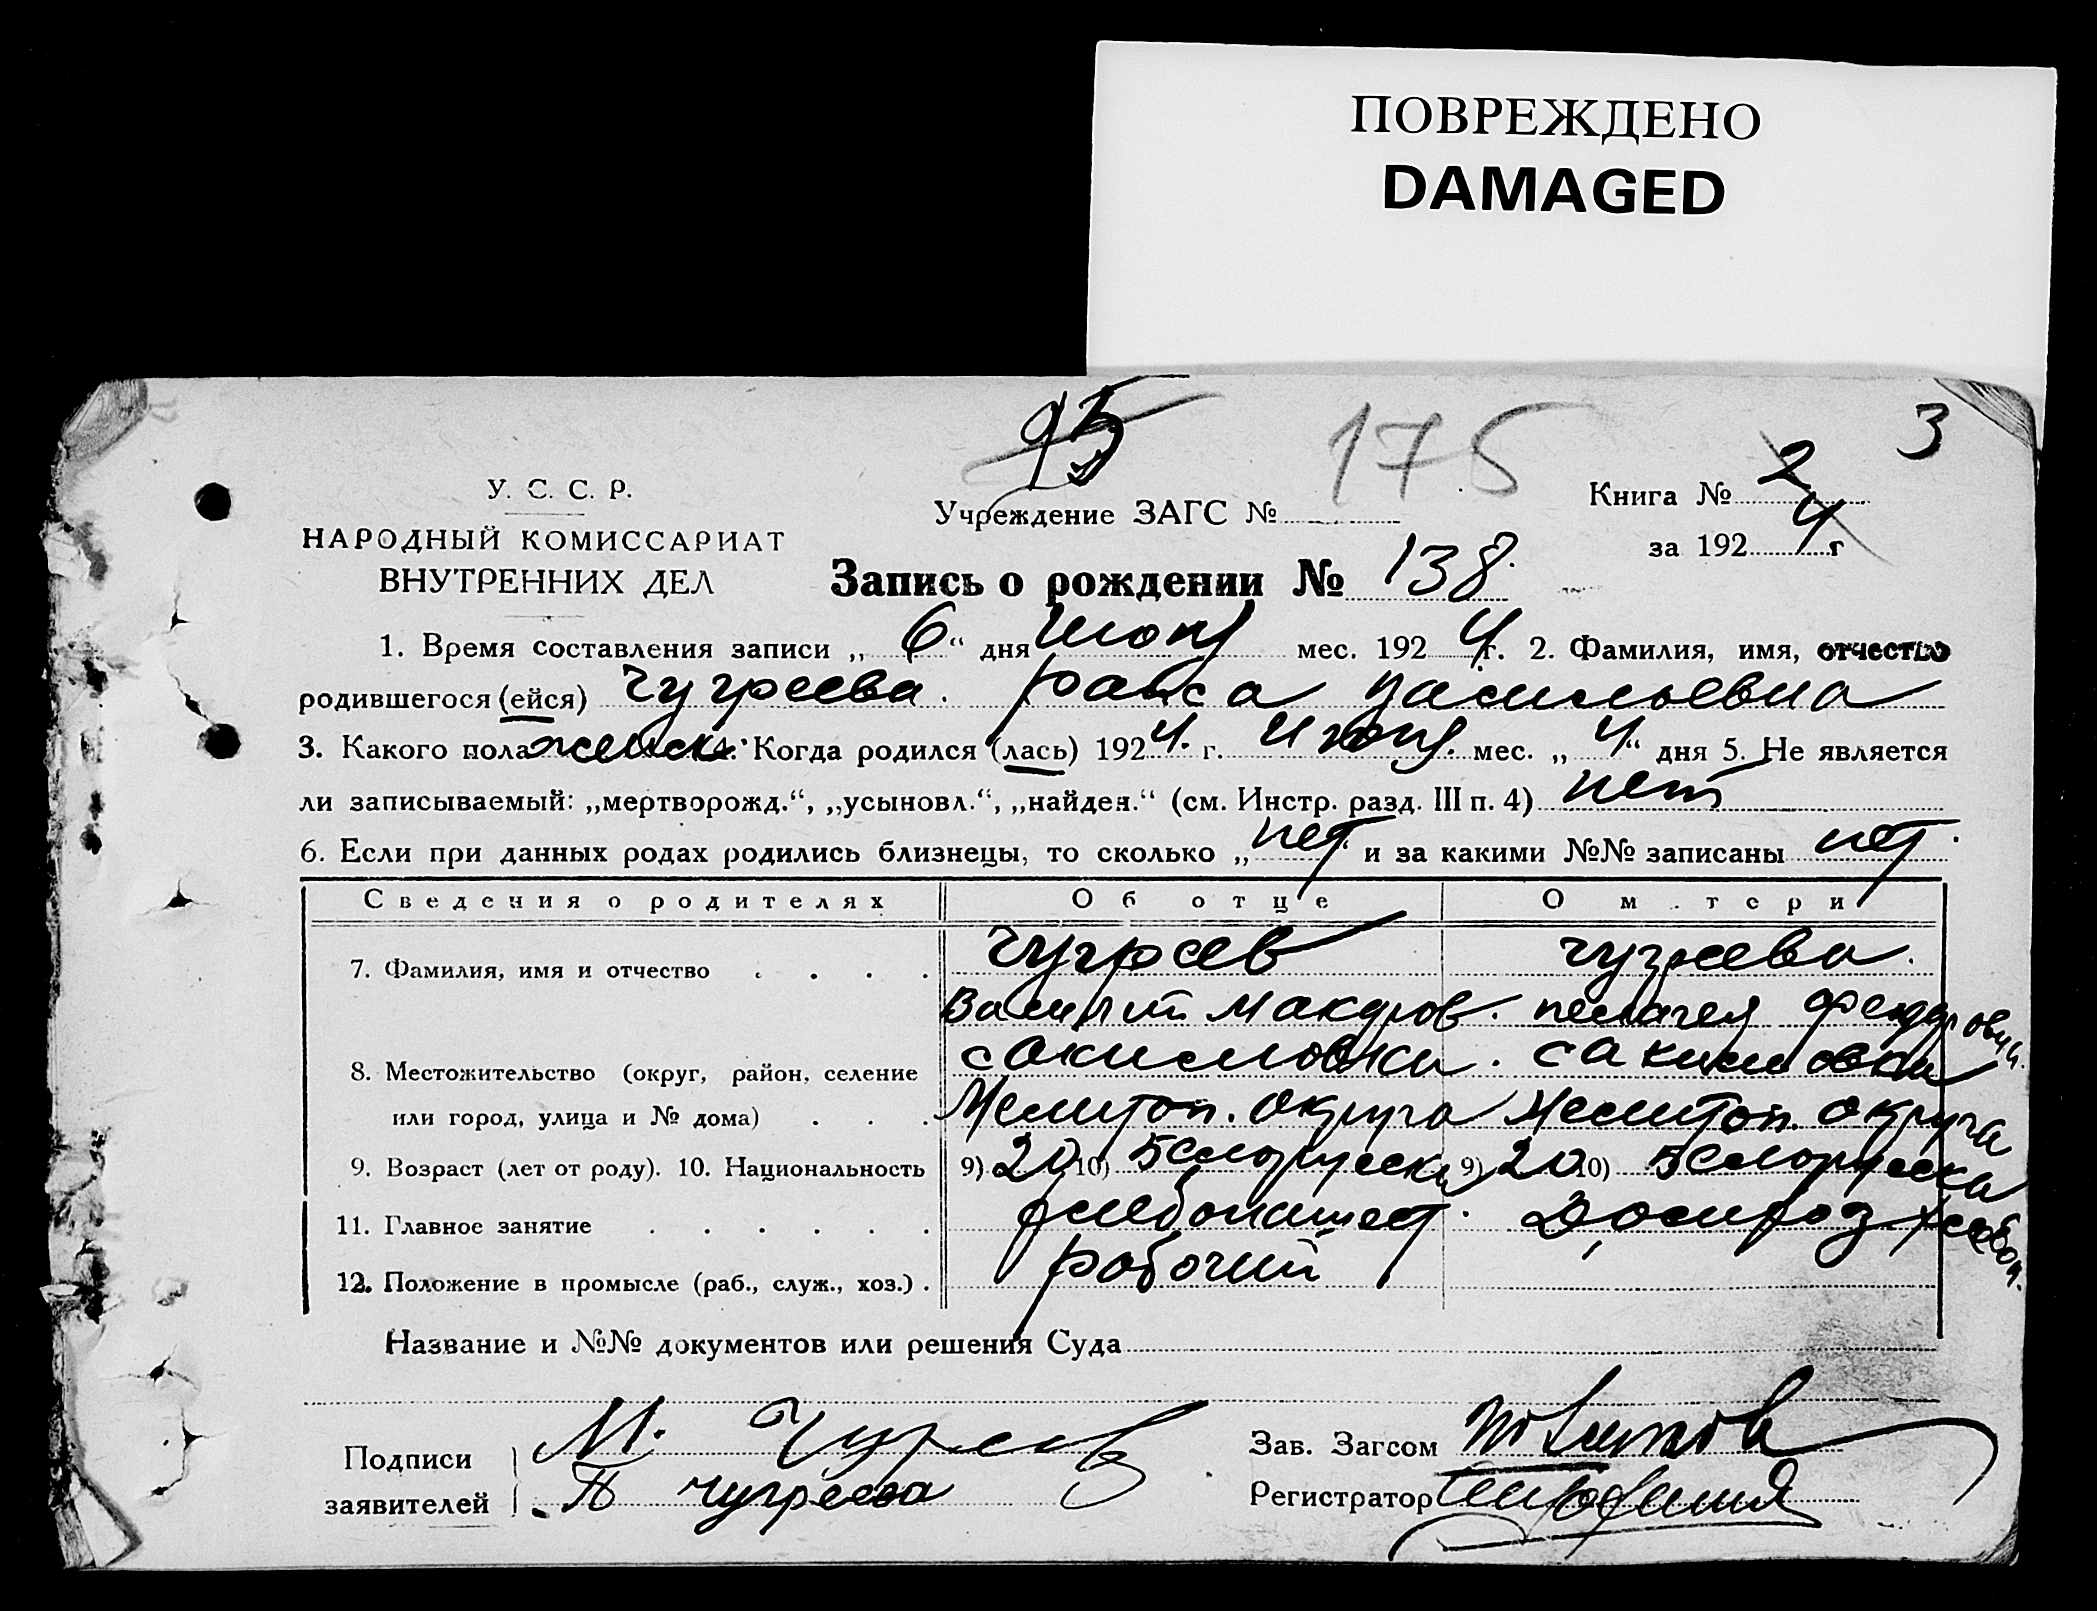 ПОВРЕЖДЕНО
DAMAGED
95
175
3
У. С. С. Р.
НАРОДНЫЙ КОМИССАРИАТ
ВНУТРЕННИХ ДЕЛ
Учреждение ЗАГС №
Книга № 2
за 1924 г
Запись о рождении № 138.
1. Время составления записи „ 6 “ дня Июня мес. 1924 г. 2. Фамилия, имя, отчество
родившегося (ейся) Чугреева. Раиса Васильевна
3. Какого пола женск. 4. Когда родился (лась) 1924. г. Июня. мес. „ 4 “ дня 5. Не является
ли записываемый: „мертворожд.“, „усыновл.“, „найден.“ (см. Инстр. разд. III п. 4) нет
6. Если при данных родах родились близнецы, то сколько „ нет. и за какими №№ записаны нет.
Сведения о родителях Об отце О матери
7. Фамилия, имя и отчество . . . . Чугреев Чугреева.
Василий Пелагея
8. Местожительство (округ, район, селение
или город, улица и № дома) . . . Мелитоп. Округа Мелитоп. Округа
9. Возраст (лет от роду). 10. Национальность 9) 20 10) Белорусск 9) 20 10) Белорусска
11. Главное занятие . . . . . . хлебопашест. Домохоз
12. Положение в промысле (раб., служ., хоз.) . рабочий
Название и №№ документов или решения Суда
Подписи заявителей
М. Чугреев
П Чугреева
Зав. Загсом
Регистратор